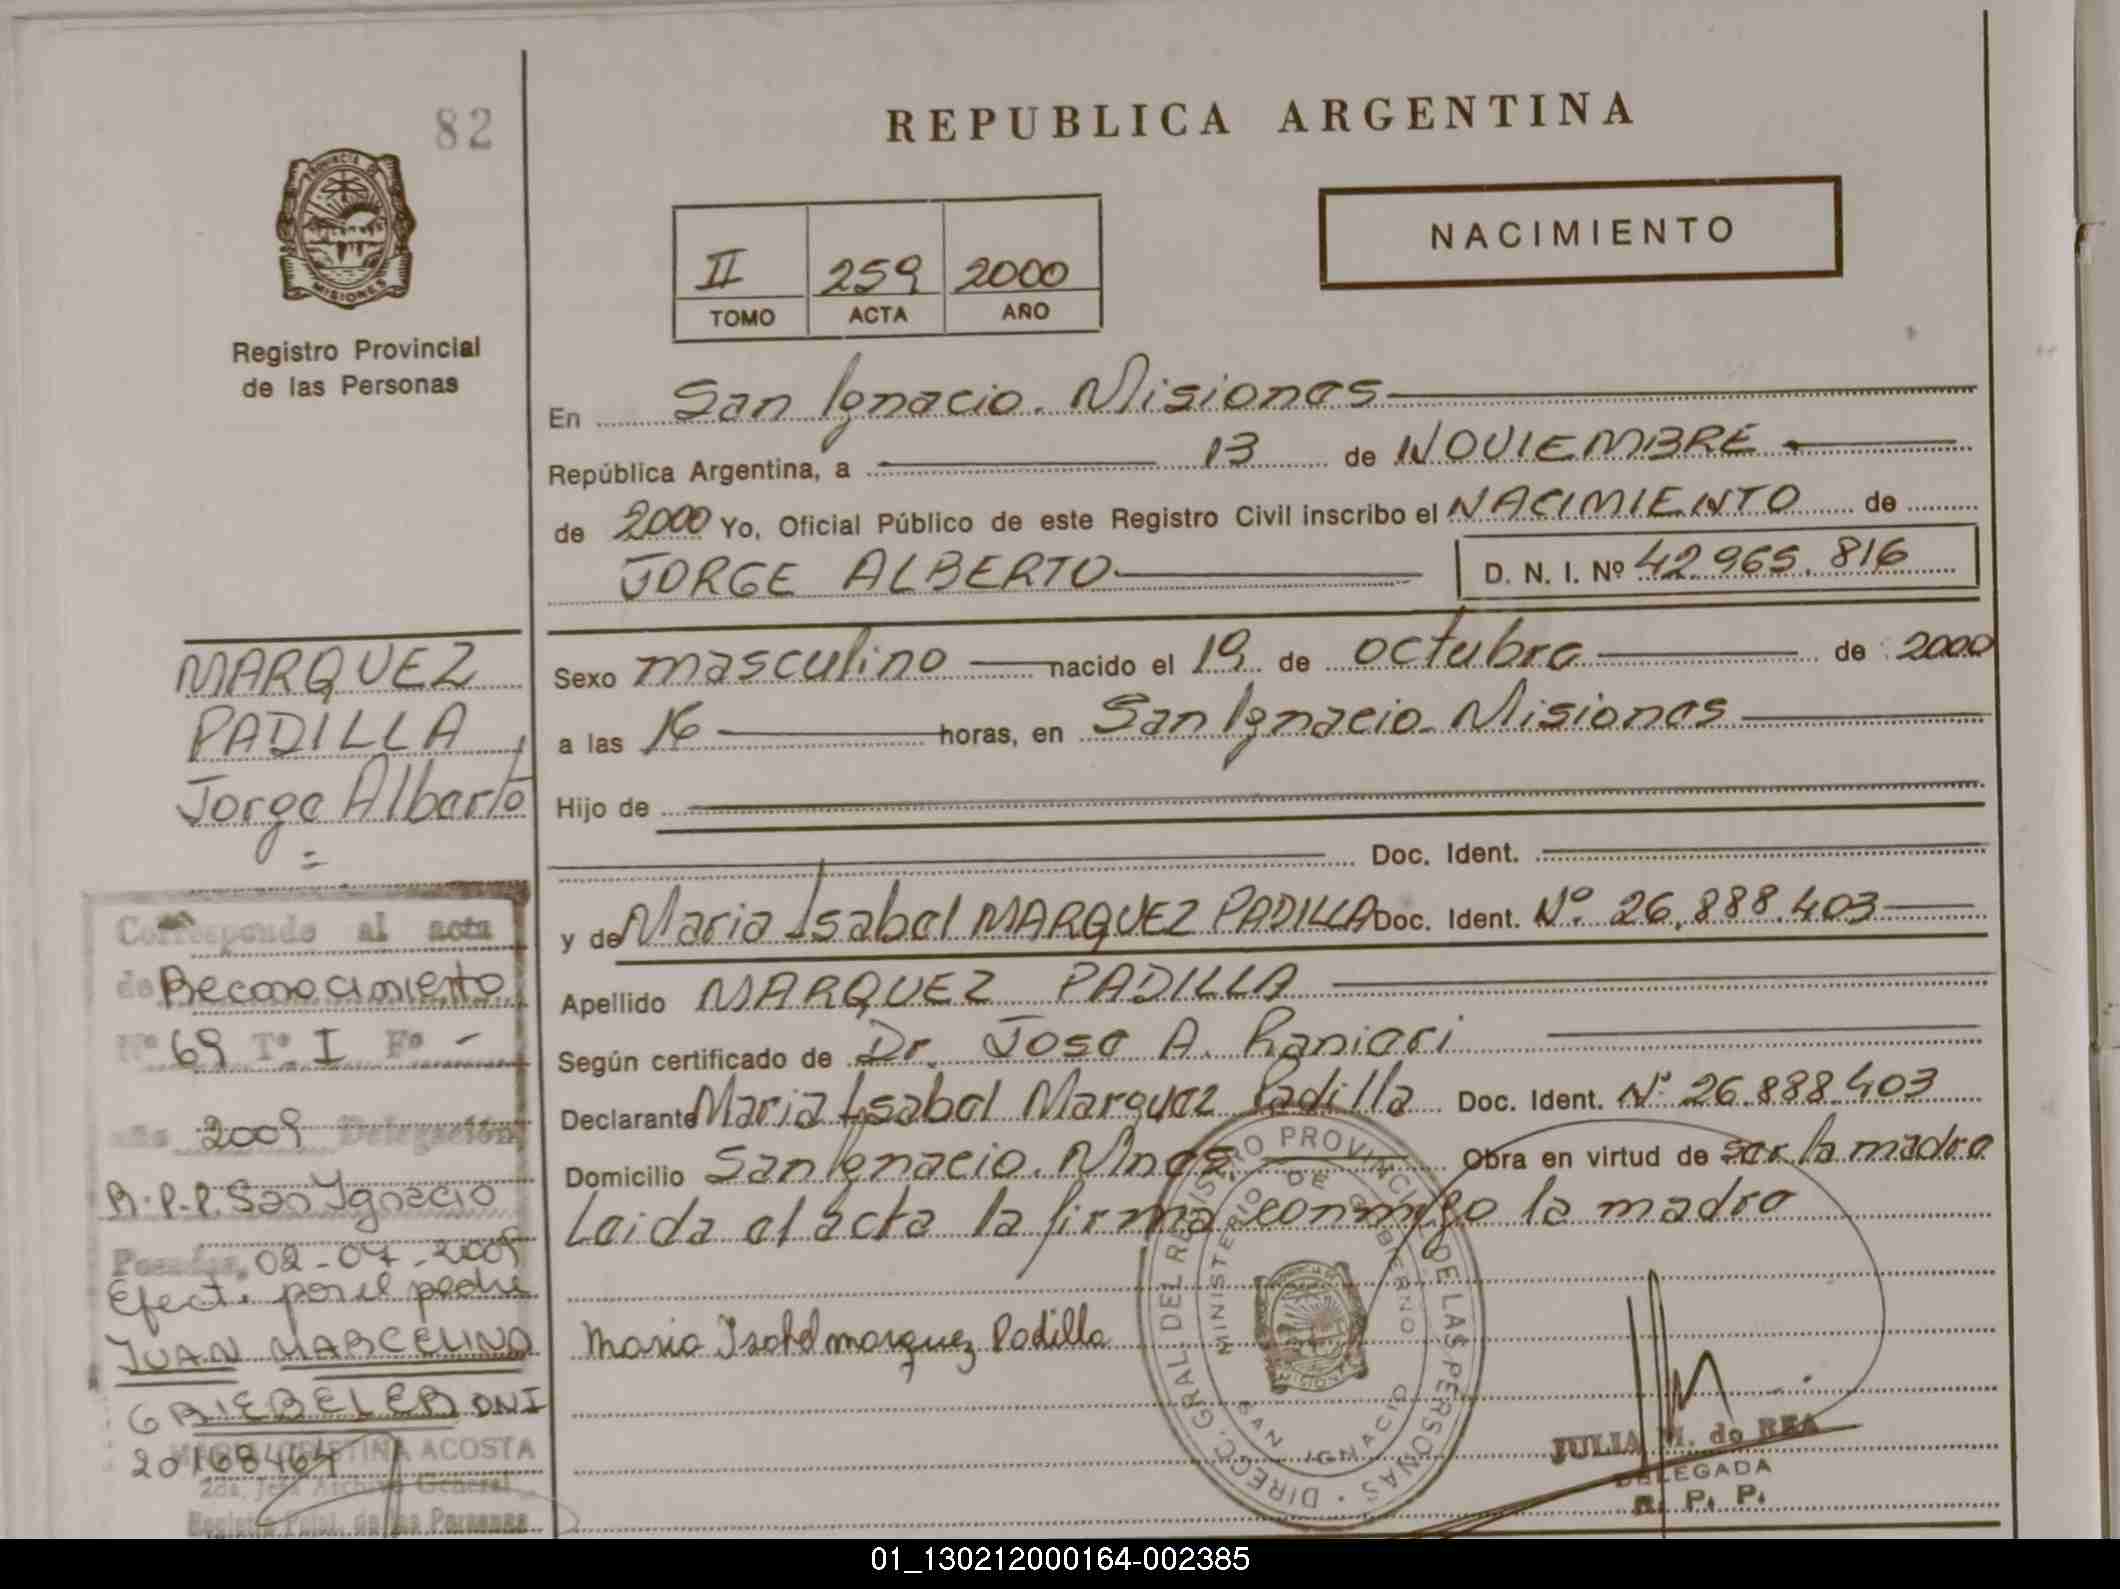 82
PROVINCIA DE
MISIONES
Registro Provincial
de las Personas
REPUBLICA ARGENTINA
NACIMIENTO
II 259 2000
TOMO ACTA AÑO
En San Ignacio. Misiones
República Argentina, a 13 de NOVIEMBRE
de 2000 Yo, Oficial Público de este Registro Civil inscribo el NACIMIENTO de
JORGE ALBERTO D. N. I. Nº 42.965.816
Sexo masculino nacido el 19 de octubre de 2000
a las 16 horas, en San Ignacio. Misiones
Hijo de
Doc. Ident.
y de Maria Isabel MARQUEZ PADILLA Doc. Ident. Nº 26.888.403
Apellido MARQUEZ PADILLA
Según certificado de Dr. Jose A. Ranieri
Declarante Maria Isabel Marquez Padilla Doc. Ident. Nº 26.888.403
Domicilio San Ignacio. Mnes. Obra en virtud de ser la madre
Leida el acta la firma conmigo la madre
Maria Isabel marquez Padilla
DIREC. GRAL. DEL REGISTRO PROVINCIAL DE LAS PERSONAS
MINISTERIO DE GOBIERNO
SAN IGNACIO
MISIONES
JULIA M. de REA
DELEGADA
R. P. P.
MARQUEZ
PADILLA,
Jorge Alberto
=
Corresponde al acta
de Reconocimiento
Nº 69 Tº I Fº -
año 2009 Delegación
R.P.P. San Ignacio
Posadas, 02-07-2009
Efect. por el padre
JUAN MARCELINO
GRIEBELER DNI
20168464
CRISTINA ACOSTA
2da. Jefa Archivo General
Registro Pcial. de las Personas
01_130212000164-002385